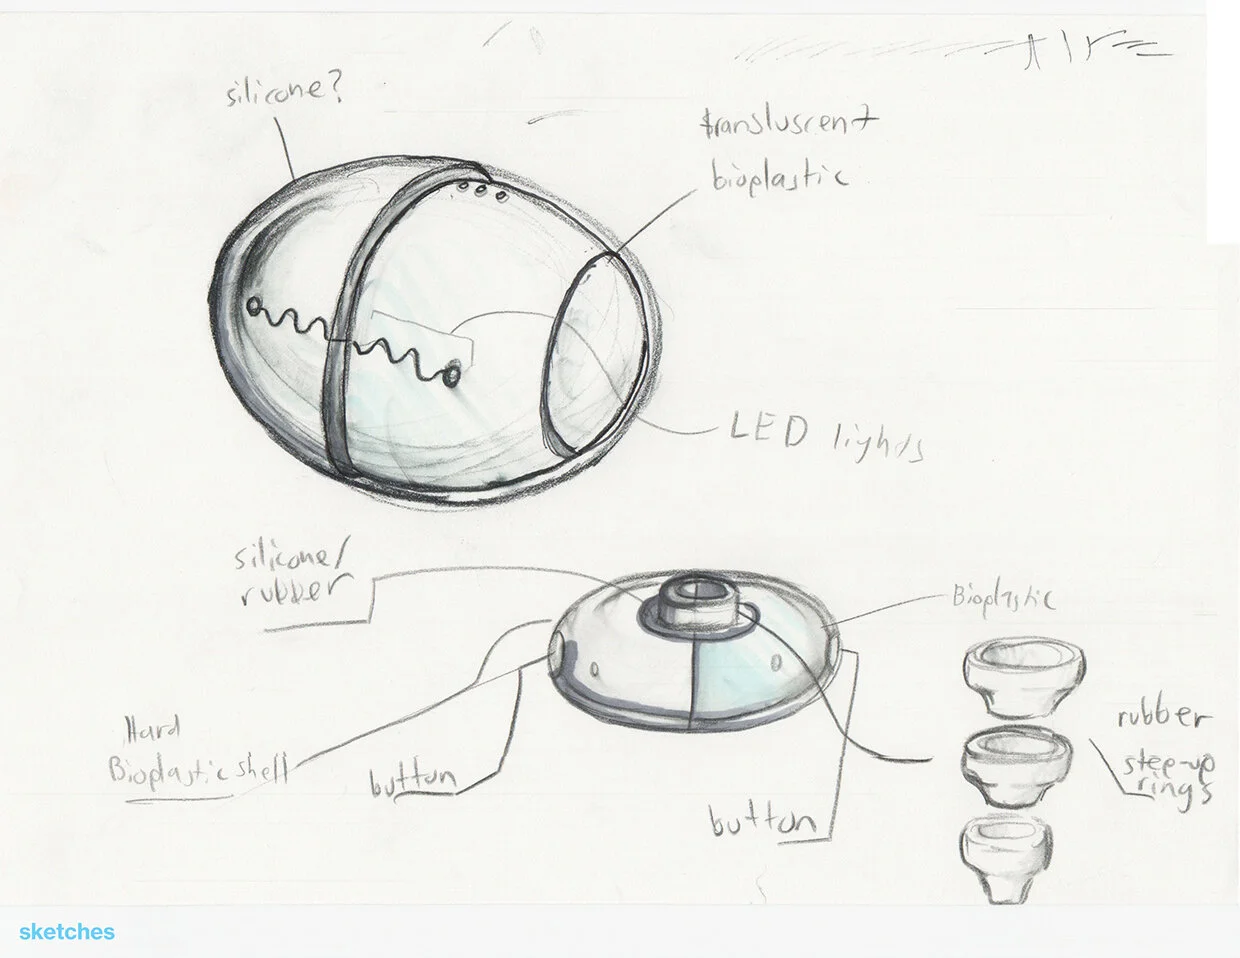 silicone?
transluscent
bioplastic
LED lights
silicone/
rubber
Bioplastic
Hard
Bioplastic shell
button
button
rubber
step-up
rings
sketches